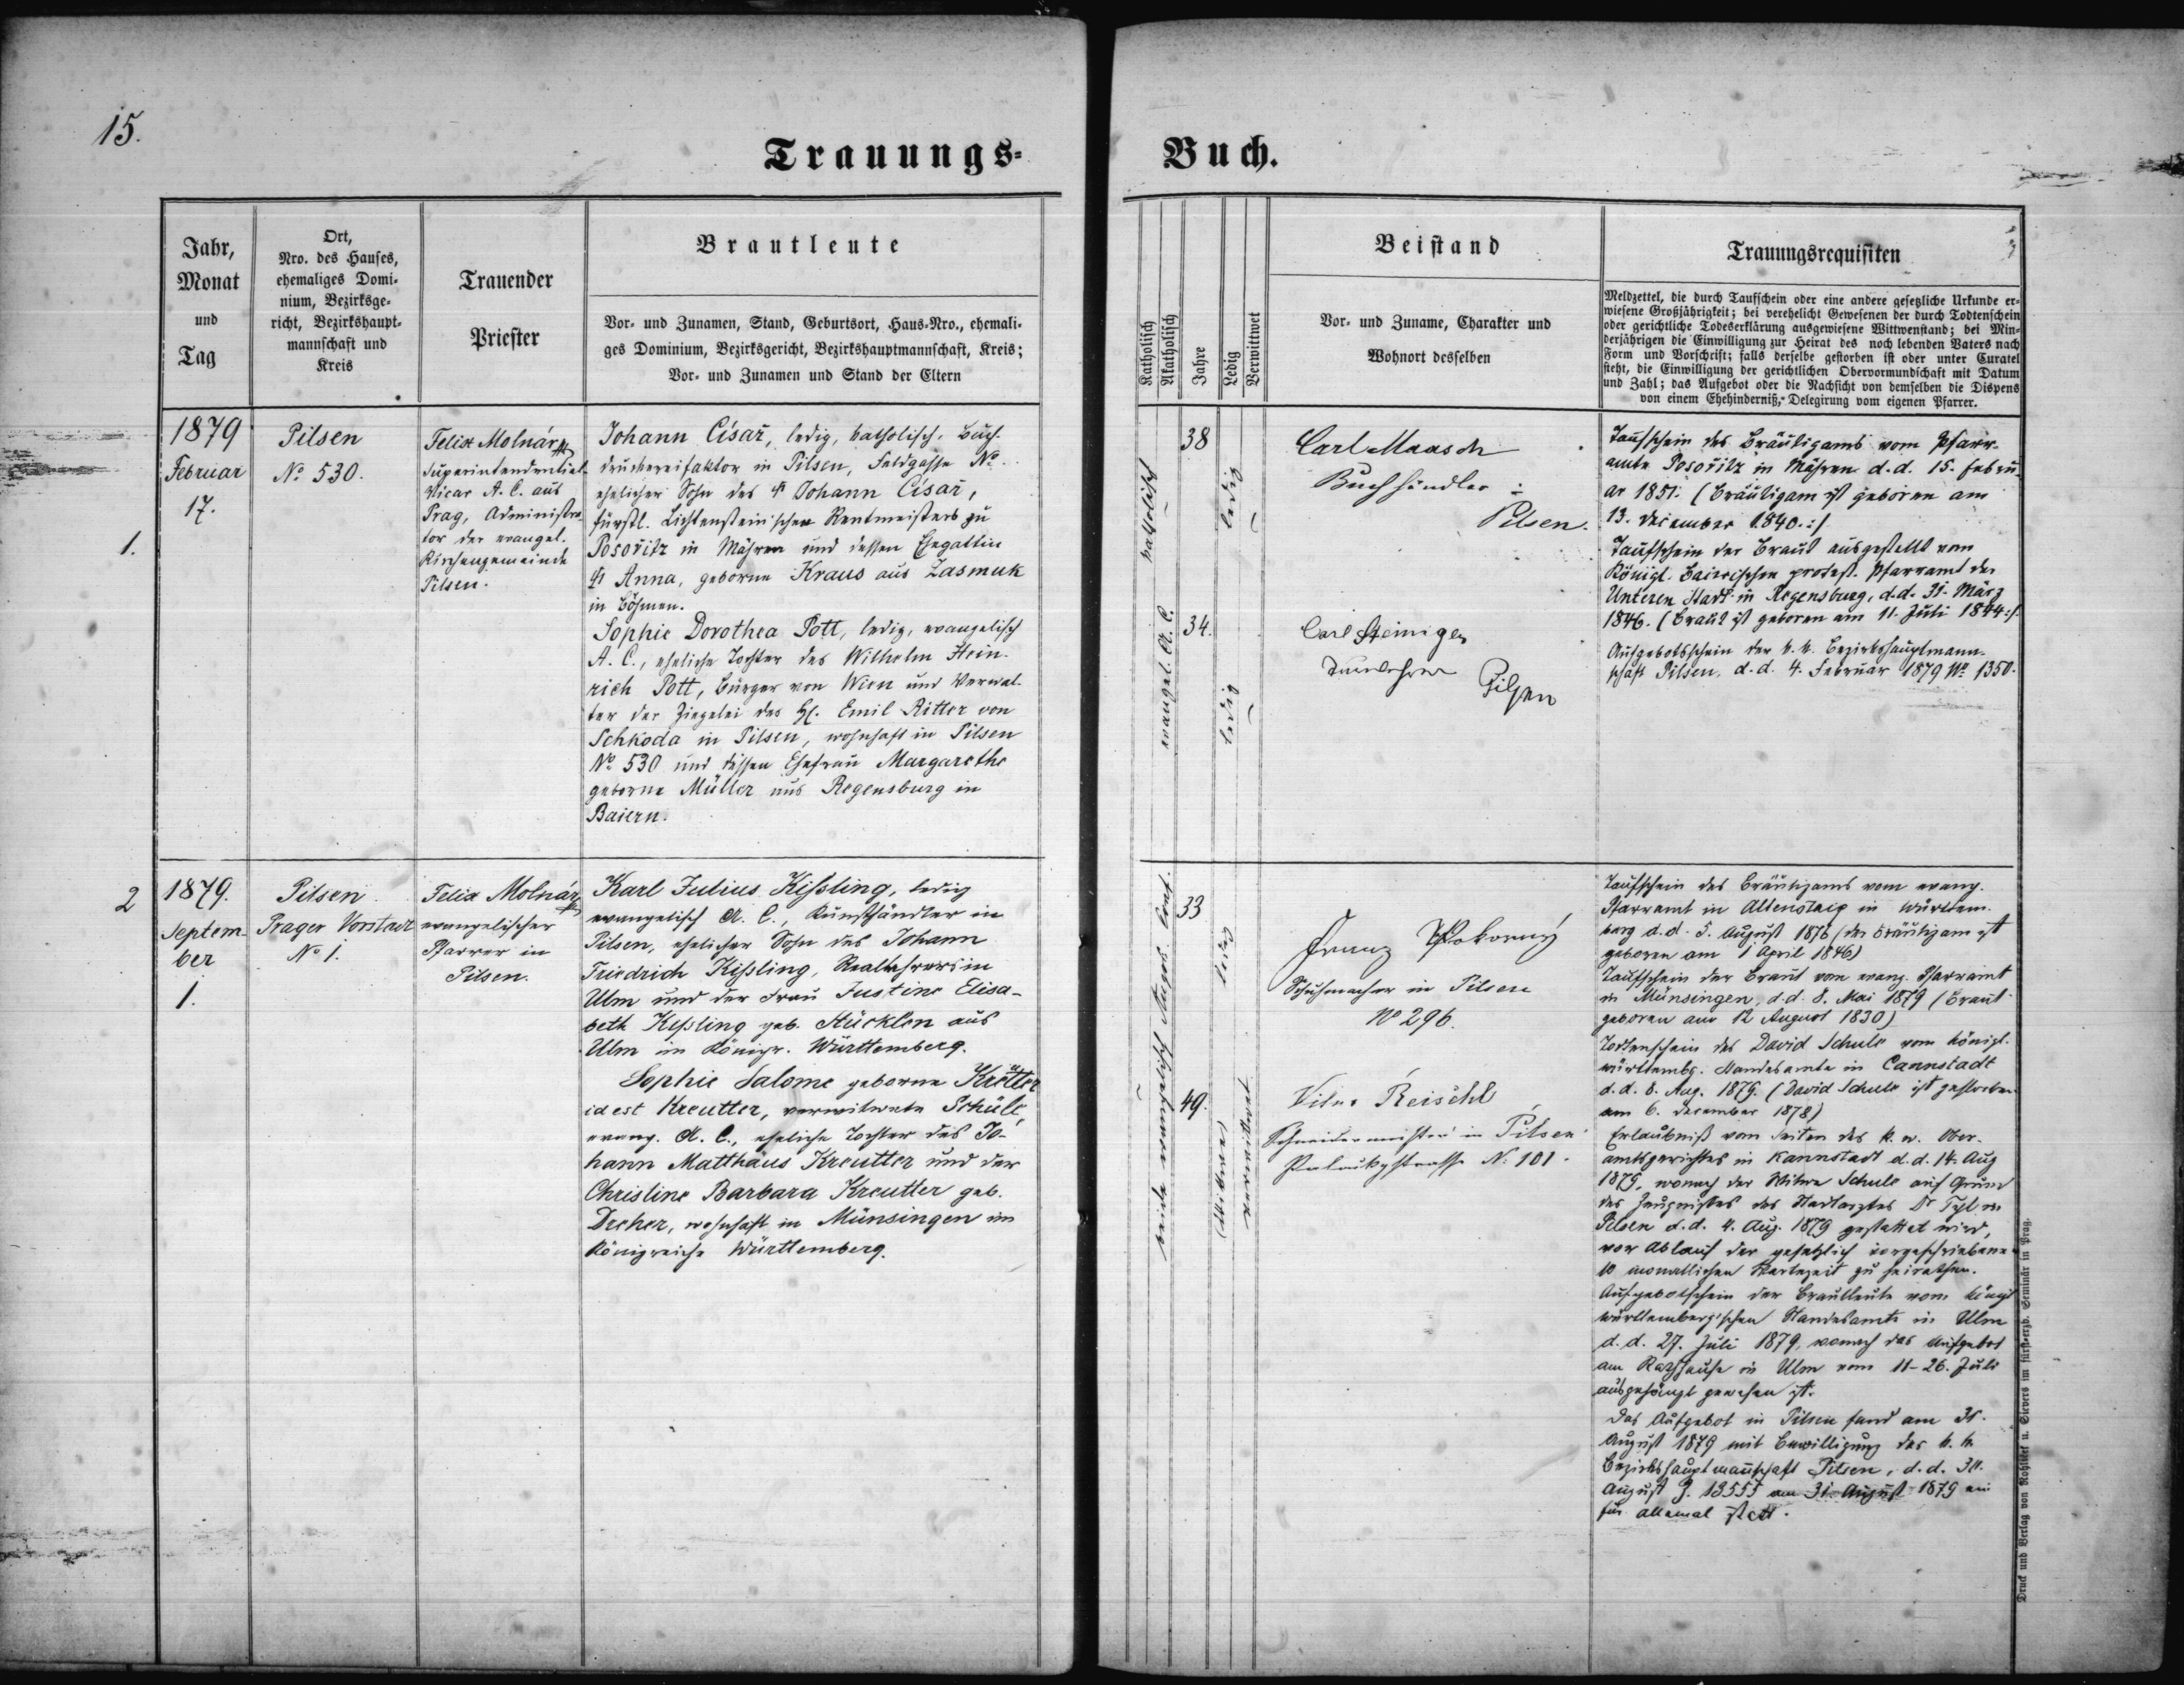 15.
Trauungs-
Buch.
Jahr,
Monat
und
Tag
Ort,
Nro. des Hauses,
ehemaliges Domi-
nium, Bezirksge-
richt, Bezirkshaupt-
mannschaft und
Kreis
Trauender
Priester
Brautleute
Vor- und Zunamen, Stand, Geburtsort, Haus-Nro., ehemali-
ges Dominium, Bezirksgericht, Bezirkshauptmannschaft, Kreis;
Vor- und Zunamen und Stand der Eltern
Katholisch
Akatholisch
Jahre
Ledig
Verwittwet
Beistand
Vor- und Zuname, Charakter und
Wohnort desselben
Trauungsrequisiten
Meldzettel, die durch Taufschein oder eine andere gesetzliche Urkunde er-
wiesene Großjährigkeit; bei verehelicht Gewesenen der durch Todtenschein
oder gerichtliche Todeserklärung ausgewiesene Wittwenstand; bei Min-
derjährigen die Einwilligung zur Heirat des noch lebenden Vaters nach
Form und Vorschrift; falls derselbe gestorben ist oder unter Curatel
steht, die Einwilligung der gerichtlichen Obervormundschaft mit Datum
und Zahl; das Aufgebot oder die Nachsicht von demselben die Dispens
von einem Ehehinderniß, Delegirung vom eigenen Pfarrer.
1.
1879
Februar
17.
Pilsen
No 530.
Felix Molnár
Superintendential-
Vicar A. C. aus
Prag, Administra-
tor der evangel.
Kirchengemeinde
Pilsen.
Johann Císař, ledig, katholisch, Buch-
druckereifaktor in Pilsen, Feldgasse No.
ehelicher Sohn des † Johann Císař,
fürstl. Lichtensteinischen Rentmeisters zu
Posořitz in Mähren und dessen Ehegattin
† Anna, geborne Kraus aus Zasmuk
in Böhmen.
Sophie Dorothea Pott, ledig, evangelisch
A. C., eheliche Tochter des Wilhelm Hein-
rich Pott, Bürger von Wien und Verwal-
ter der Ziegelei des H. Emil Ritter von
Schkoda in Pilsen, wohnhaft in Pilsen
No 530 und dessen Ehefrau Margarethe
geborne Müller aus Regensburg in
Baiern.
katholisch
evangel. A. C.
38
34.
ledig
ledig
Carl Maasch
Buchhändler
Pilsen.
Carl Steiniger
Pilsen
Taufschein des Bräutigams vom Pfarr-
amte Posořitz in Mähren d. d. 15. Febru-
ar 1851. (Bräutigam ist geboren am
13. December 1840.:/
Taufschein der Braut ausgestellt vom
Königl. Bairischen protest. Pfarramt der
Unteren Stadt in Regensburg, d. d. 31. März
1846. (Braut ist geboren am 11. Juli 1844:/.
Aufgebotsschein der k. k. Bezirkshauptmann-
schaft Pilsen, d. d. 4. Februar 1879 No 1350.
2
1879.
Septem-
ber
1.
Pilsen
Prager Vorstadt
No 1.
Felix Molnár
evangelischer
Pfarrer in
Pilsen.
Karl Julius Kißling, ledig
evangelisch A. C., Kunsthändler in
Pilsen, ehelicher Sohn des Johann
Friedrich Kißling, Reallehrers in
Ulm und der Frau Justine Elisa-
beth Kißling geb. Stücklen aus
Ulm im Königr. Württemberg.
Sophie Salome geborne Kretter
id est Kreutter, verwitwete Schüle
evang. A. C., eheliche Tochter des Jo-
hann Matthäus Kreutter und der
Christine Barbara Kreutter geb.
Dreher, wohnhaft in Münsingen im
Königreiche Württemberg.
beide evangelisch Augsb. Conf.
33
49.
ledig
(Witwe)
verwittwet
Franz Pokorný
Schuhmacher in Pilsen
No 296.
Reischl
Schneidermeister in Pilsen
Palackystrasse N. 101.
Taufschein des Bräutigams vom evang.
Pfarramt in Altensteig in Württem-
berg d. d. 5. August 1876 (der Bräutigam ist
geboren am 1 April 1846)
Taufschein der Braut vom evang. Pfarramt
in Münsingen, d. d. 8. Mai 1879 (Braut
geboren am 12 August 1830)
Todtenschein des David Schule vom königl.
württembg. Standesamte in Cannstadt
d. d. 8. Aug. 1879. (David Schule ist gestorben
am 6. December 1878)
Erlaubniß von Seiten des k. w. Ober-
amtsgerichtes in Kannstadt d. d. 14. Aug
1879, wonach der Witwe Schule auf Grund
des Zeugnisses des Stadtarztes Dr Tyl in
Pilsen d. d. 4. Aug. 1879 gestattet wird,
vor Ablauf der gesetzlich vorgeschriebenen
10 monatlichen Wartezeit zu heirathen.
Aufgebotschein der Brautleute vom königl
württemberg'schen Standesamte in Ulm
d. d. 27. Juli 1879, wonach das Aufgebot
am Rathhause in Ulm vom 11-26. Juli
ausgehängt gewesen ist.
Das Aufgebot in Pilsen fand am 31.
August 1879 mit Bewilligung der k. k.
Bezirkshauptmannschaft Pilsen, d. d. 30.
August Z. 13555 am 31. August 1879 ein
für allemal statt.
Druck und Verlag von Rohliček u. Sievers im fürst-erzb. Seminär in Prag.